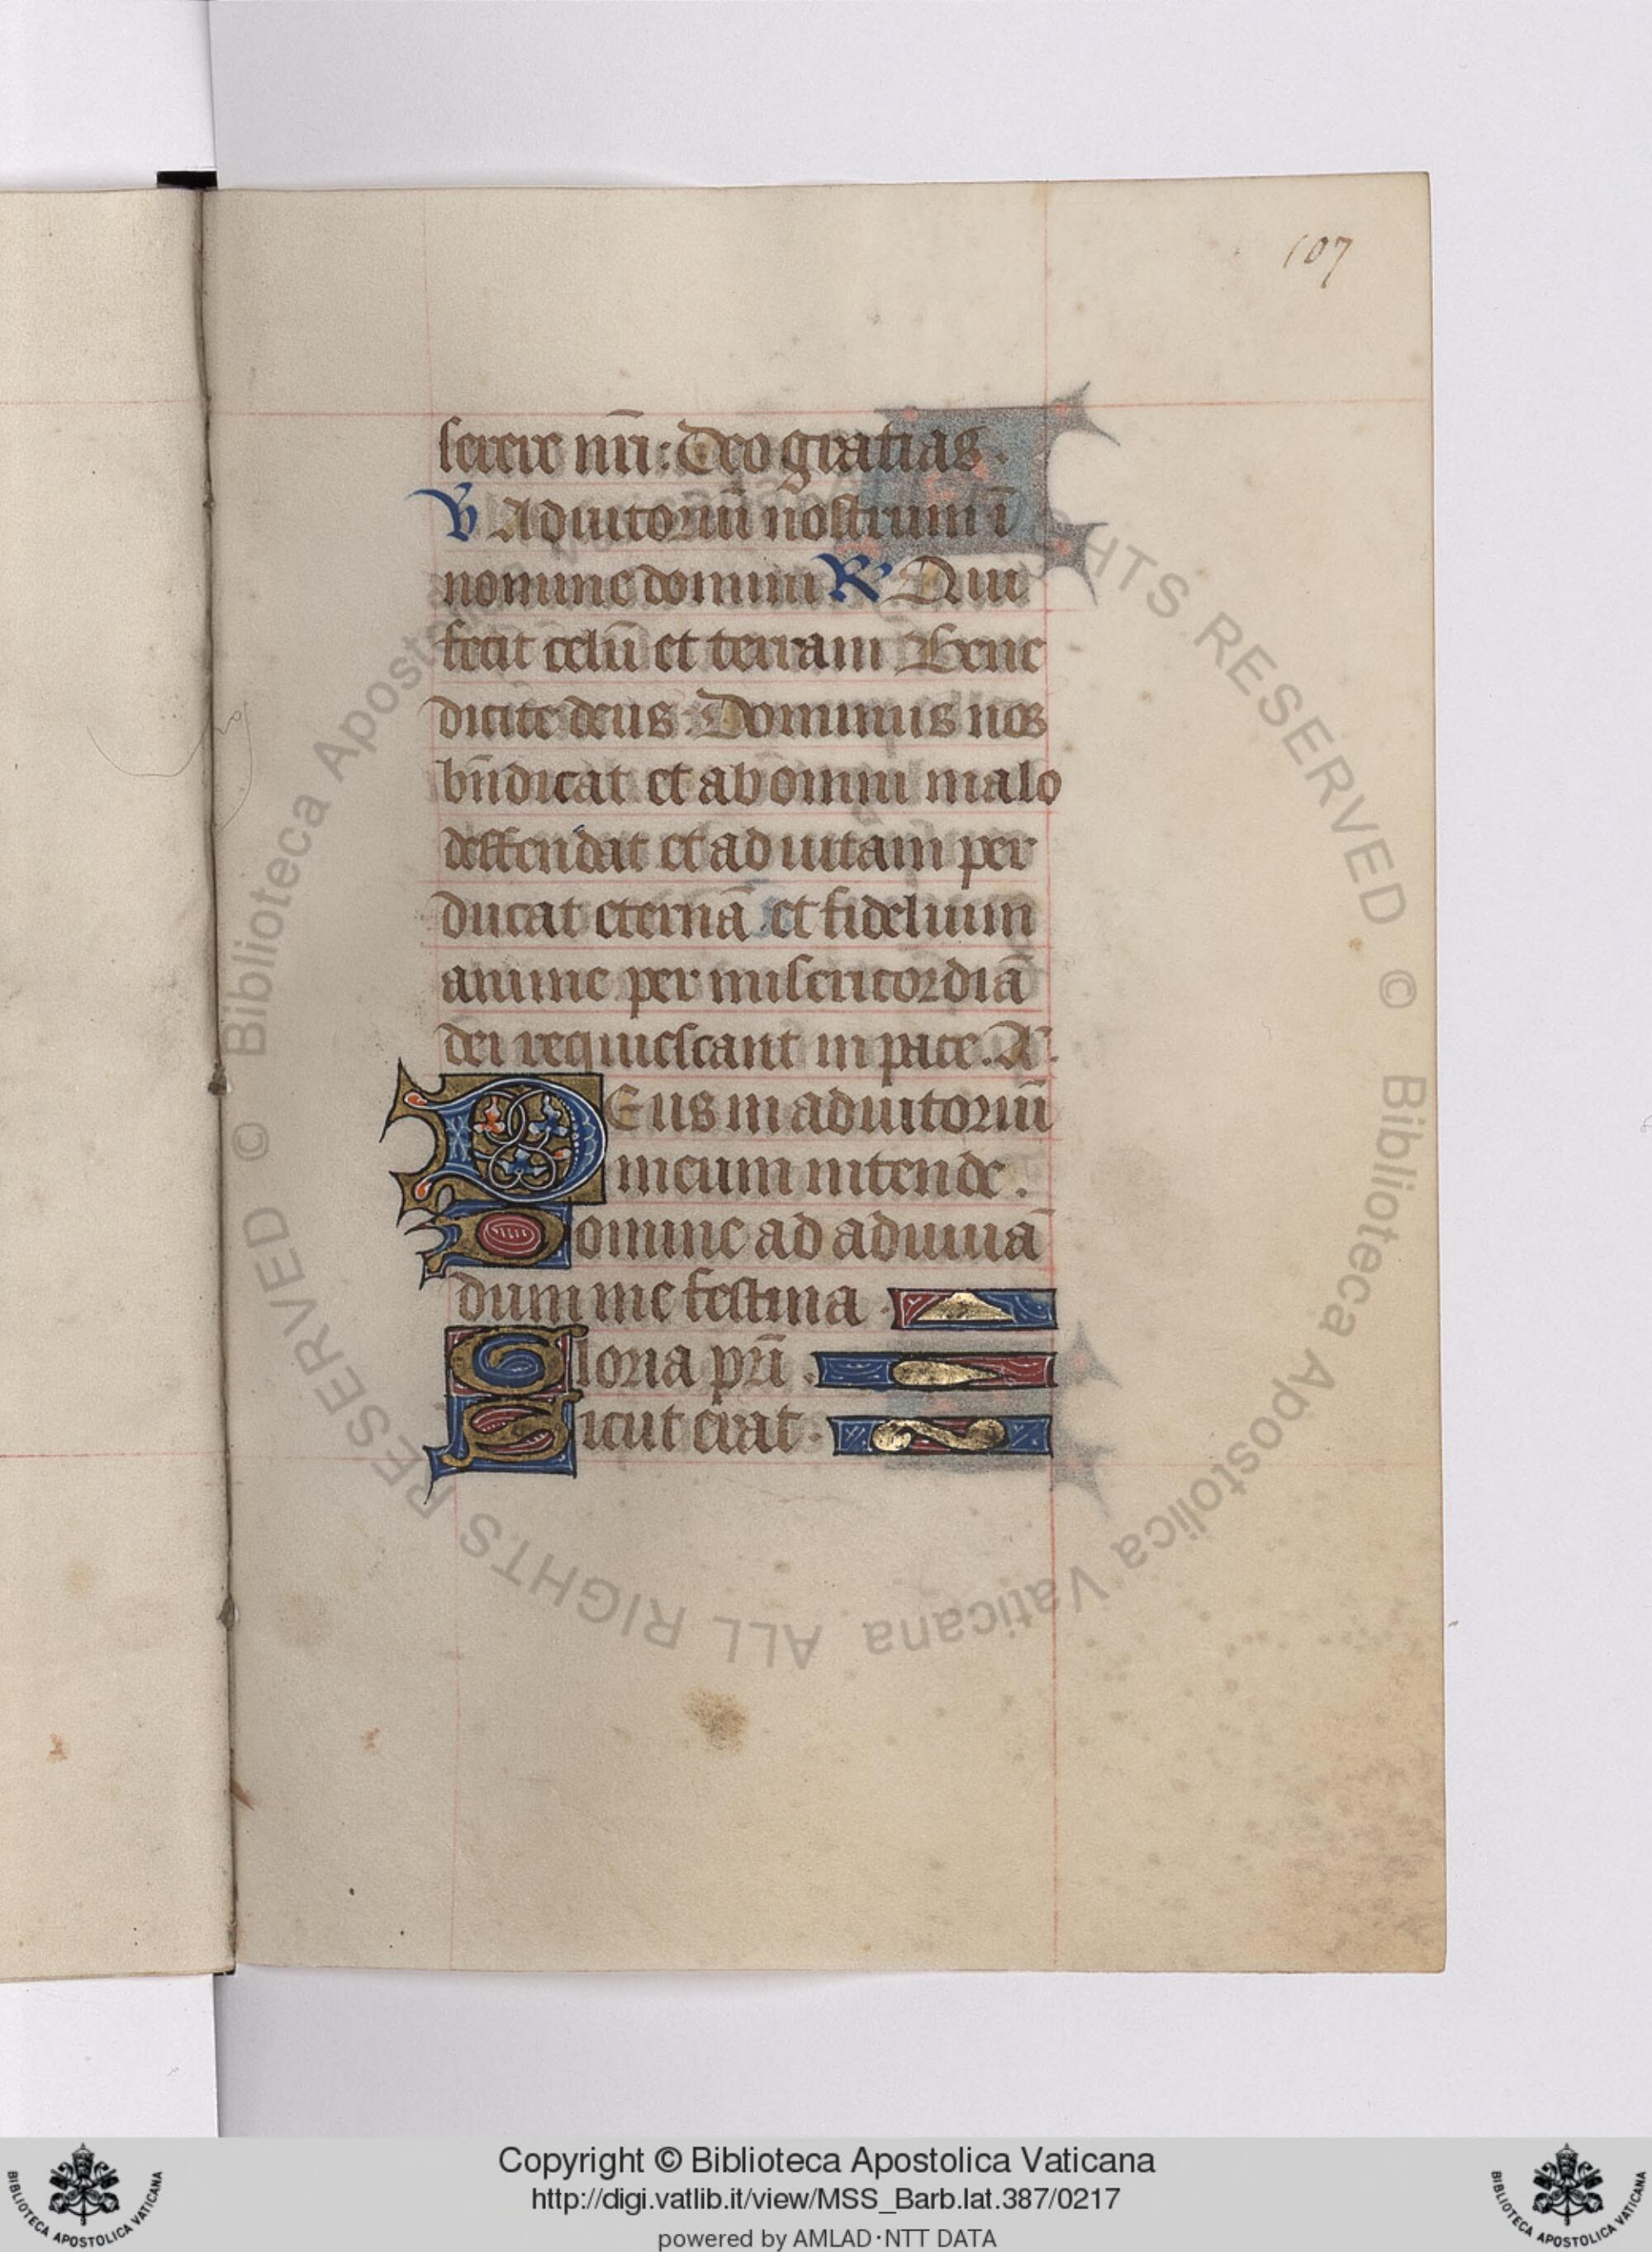 107
serere nr̄i: Deo gratias.
V Adiutoriū nostrum ī
nomine domini R Qui
fecit celū et terram Bene
dicite deus. Dominus nos
bn̄dicat et ab omni malo
deffendat et ad uitam per
ducat eternā et fidelium
anime per misericordiā
dei requiescant in pace. A.
DEus in adiutoriū
meum intende.
Domine ad adiuuā
dum me festina.
Gloria pr̄i.
Sicut erat.
© Biblioteca Apostolica Vaticana ALL RIGHTS RESERVED
© Biblioteca Apostolica Vaticana ALL RIGHTS RESERVED
Copyright © Biblioteca Apostolica Vaticana
http://digi.vatlib.it/view/MSS_Barb.lat.387/0217
powered by AMLAD·NTT DATA
BIBLIOTECA APOSTOLICA VATICANA
BIBLIOTECA APOSTOLICA VATICANA